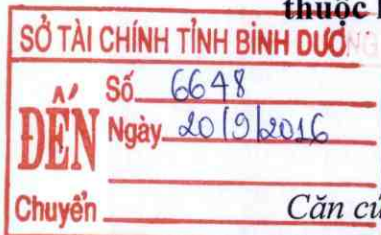 thuộc
SỞ TÀI CHÍNH TỈNH BÌNH DƯƠNG
ĐẾN
Số 6648
Ngày 20/9/2016
Chuyển
Căn cứ